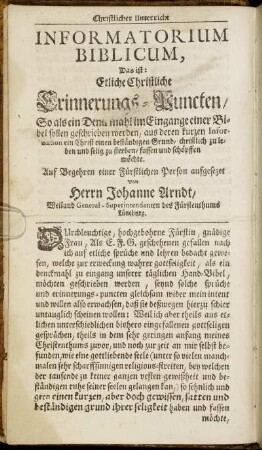 Christlicher Unterricht
INFORMATORIUM
BIBLICUM,
Das ist:
Etliche Christliche
Erinnerungs-Puncten/
So als ein Denckmahl im Eingange einer Bi-
bel sollen geschrieben werden, aus deren kurzen Infor-
mation ein Christ einen beständigen Grund, christlich zu le-
ben und selig zu sterben, fassen und schöpffen
möchte.
Auf Begehren einer Fürstlichen Person aufgesetzt
von
Herrn Johanne Arndt,
Weiland General-Superintendenten des Fürstenthums
Lüneburg.
DUrchleuchtige, hochgebohrne Fürstin, gnädige
Frau, Als E. F. G. geschehenen gefallen nach
ich auf etliche sprüche und lehren bedacht gewe-
sen, welche zur erweckung wahrer gottseligkeit, als ein
denckmahl zu eingang unserer täglichen Hand-Bibel,
möchten geschrieben werden, seynd solche sprüche
und erinnerungs-puncten gleichsam wider mein intent
und willen also erwachsen, daß sie deßwegen hierzu schier
untauglich scheinen wollen: Weil aber theils aus et-
lichen unterschiedlichen bißhero eingefallenen gottseligen
gesprächen, theils in dem sehr geringen anfang meines
Christenthums zuvor, und noch zur zeit an mir selbst be-
funden, wie eine gottliebende seele (unter so vielen manch-
malen sehr scharffsinnigen religions-streiten, bey welchen
der tausende zu keiner ganzen vesten gewißheit und be-
ständigen ruhe seiner seelen gelangen kan) so sehnlich und
gern einen kurzen, aber doch gewissen, satten und
beständigen grund ihrer seligkeit haben und fassen
möchte,